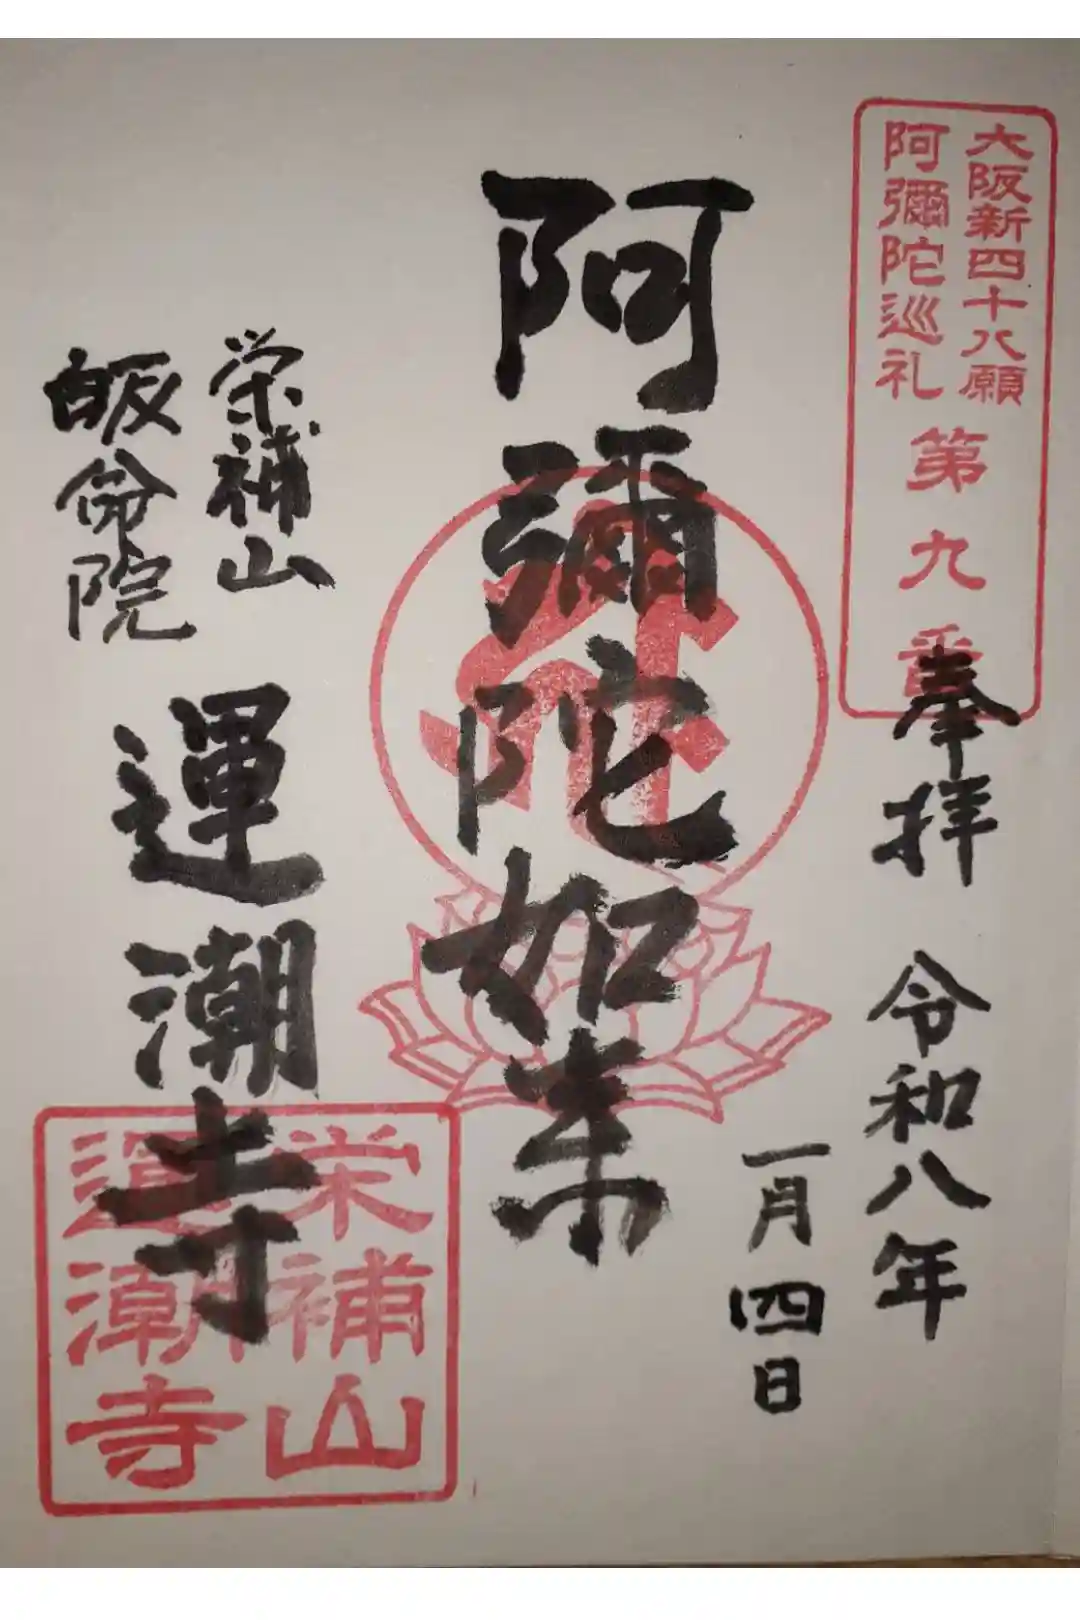 大阪新四十八願
阿彌陀巡礼
第九番
奉拝
令和八年
一月四日
阿彌陀如来
栄補山
皈命院
運潮寺
栄補山
運潮寺